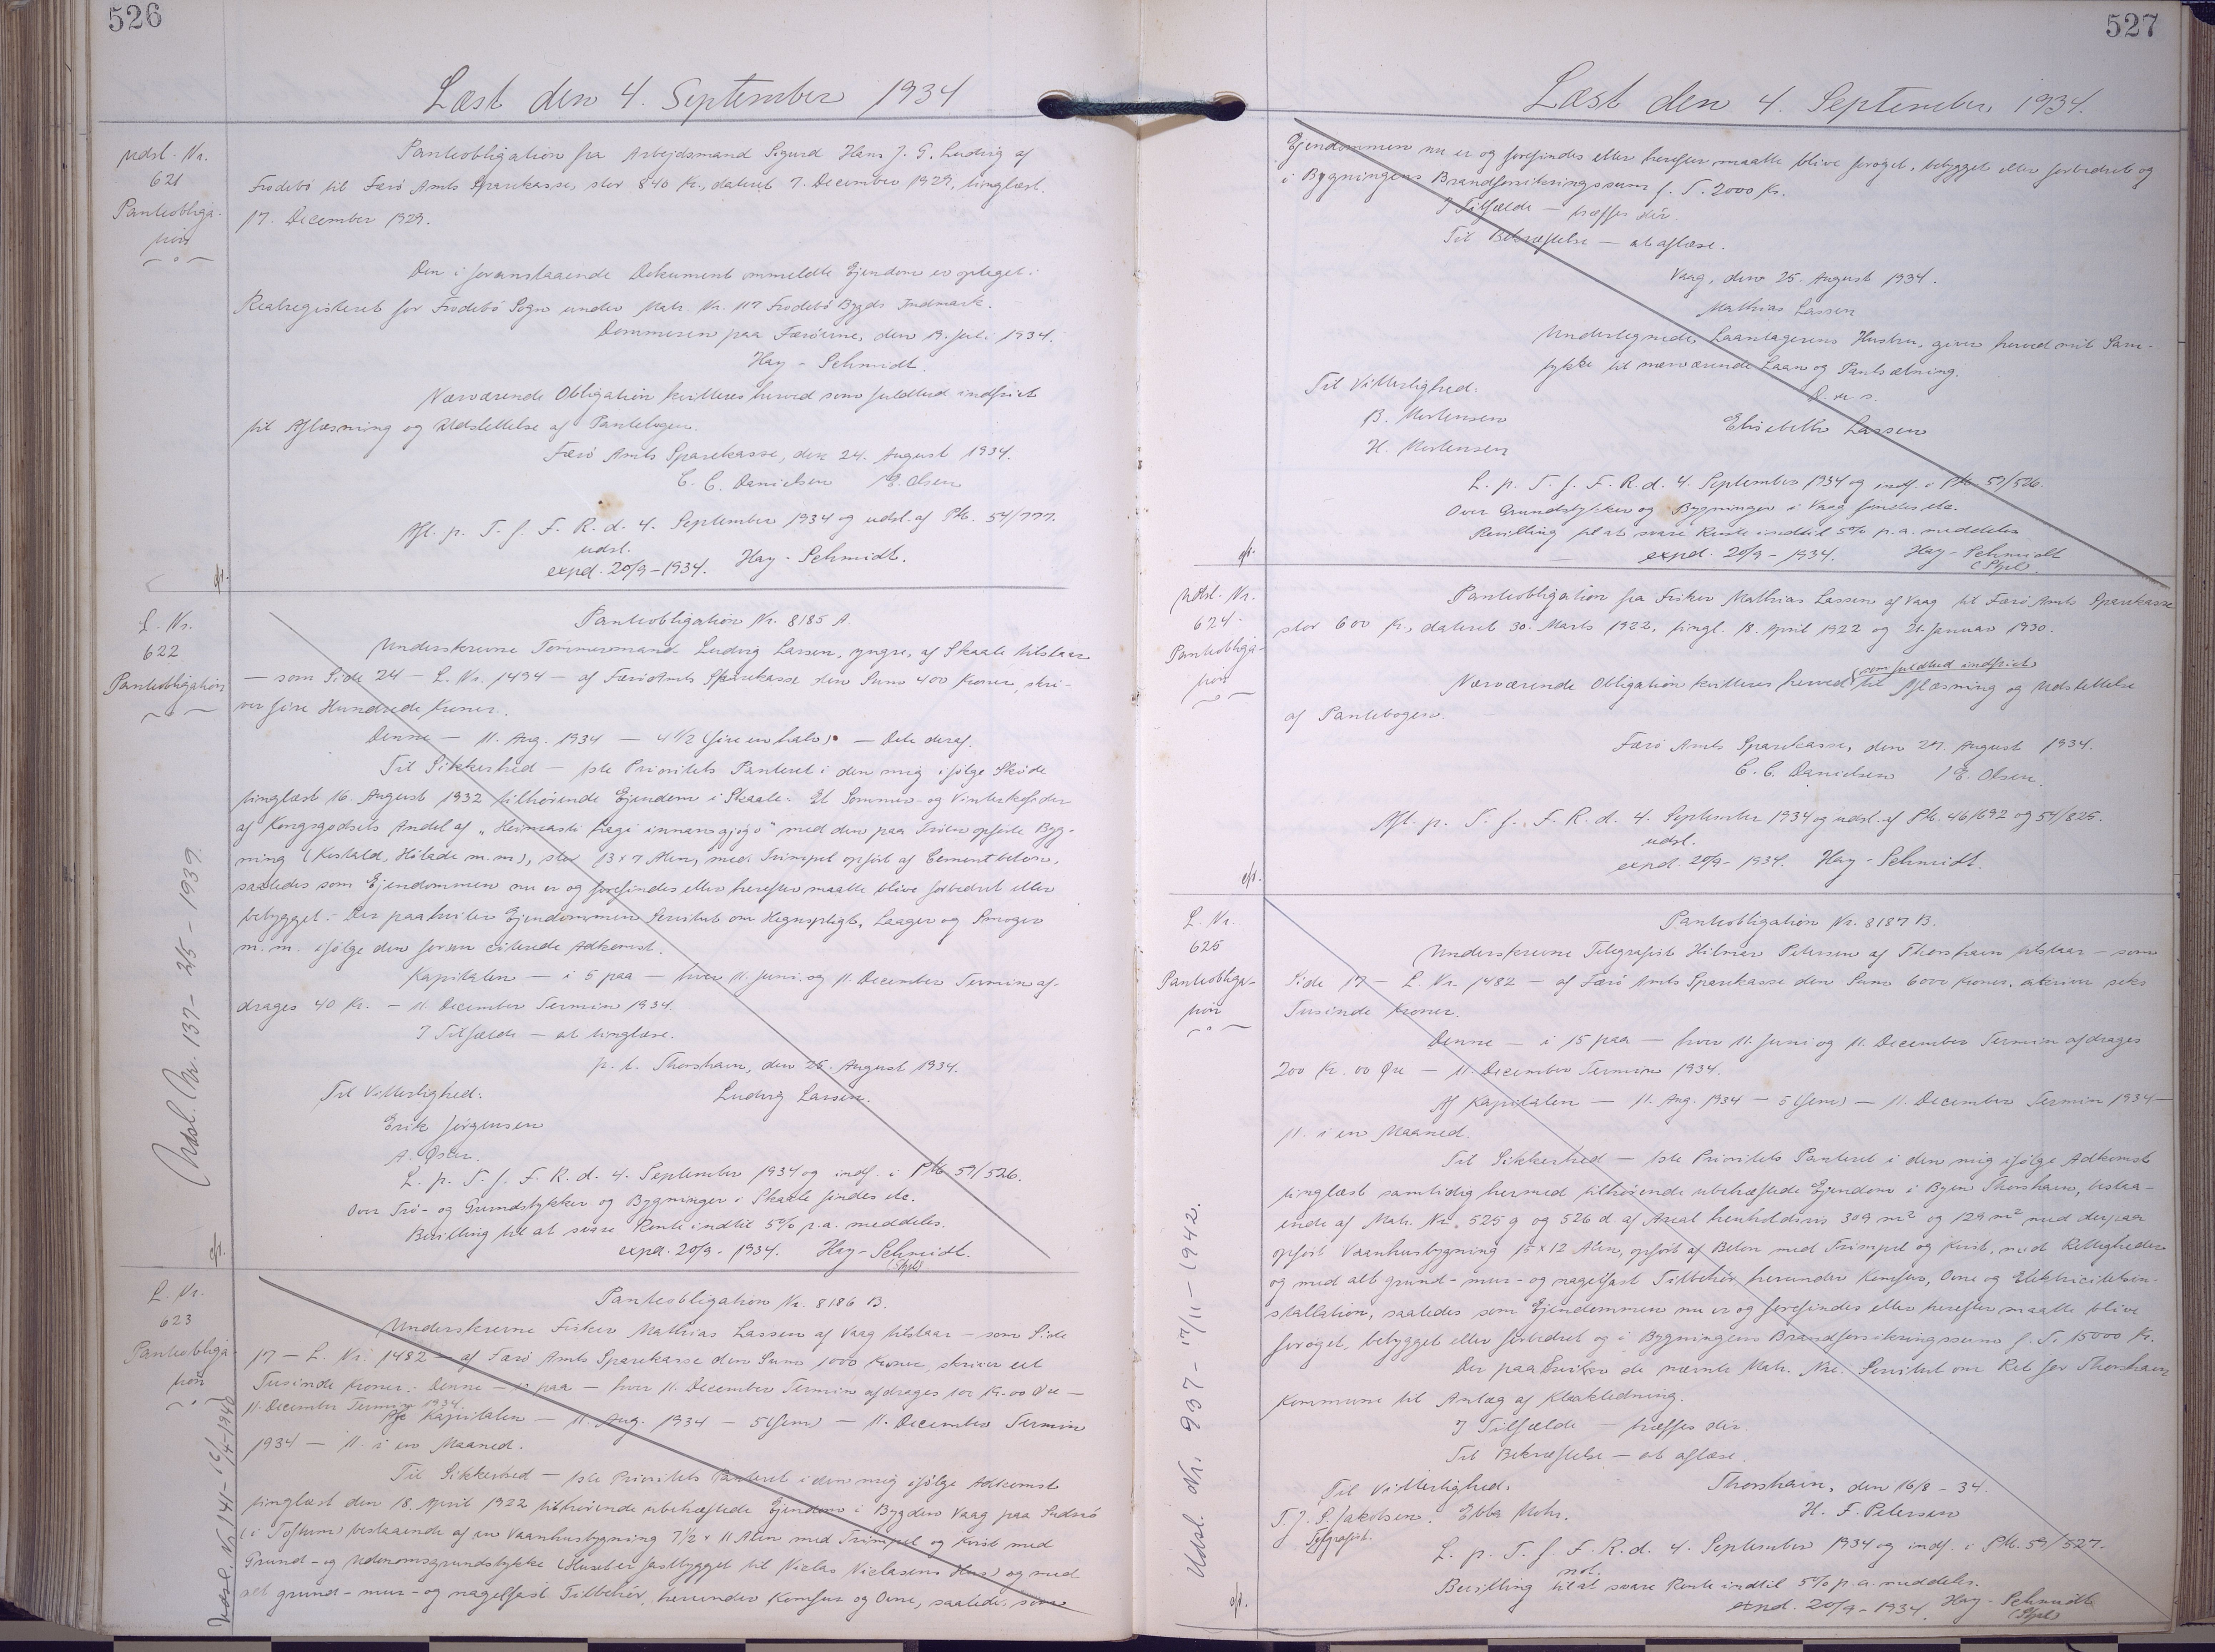 526
Læst den 4. September 1934
Udsl. Nr.
621
Panteobliga-
tion
Panteobligation fra Arbejdsmand Sigurd Hans J. G. Ludvig af
Frodebö til Færö Amts Sparekasse, stor 840 Kr., dateret 7. December 1929, tinglæst
17. December 1929.
Den i foranstaaende Dokument ommeldte Ejendom er optaget i
Realregisteret for Frodebö Sogn under Matr. Nr. 117 Frodebö Bygds Indmark.
Dommeren paa Færöerne, den 19. Juli 1934.
Hay-Schmidt.
Nærværende Obligation kvitteres herved som fuldtud indfriet
til Aflæsning og Udslettelse af Pantebogen.
Færö Amts Sparekasse, den 24. August 1934.
C. C. Danielsen /E. Olsen
Afl. p. T. f. F. R. d. 4. September 1934 og udsl. af Ptb. 54/777.
udsl.
expd. 20/9-1934. Hay-Schmidt.
L. Nr.
622
Panteobligation
Panteobligation Nr. 8185 A.
Underskrevne Tömmermand Ludvig Larsen, yngre, af Skaale tilstaar
— som Side 24 — L. Nr. 1494 — af Færö Amts Sparekasse den Sum 400 Kroner, skri-
ver fire Hundrede Kroner.
Denne — 11. Aug. 1934 — 4 1/2 (fire en halv) — Dele deraf.
Til Sikkerhed — 1ste Prioritets Panteret i den mig ifölge Sköde
tinglæst 16. August 1932 tilhörende Ejendom i Skaale: Et Sommer- og Vinterkofoder
af Kongsgodsets Andel af „Heimasti hagi innangjögv" med den paa Tröen opförte Byg-
ning (Kostald, Hölade m.m), stor 13 x 7 Alen, med Trimpel opfört af Cementbeton,
saaledes som Ejendommen nu er og forefindes eller herefter maatte blive forbedret eller
bebygget. Der paahviler Ejendommen Servitut om Hegnspligt, Laager og Smoger
m.m. ifölge den foran citerede Adkomst.
Kapitalen — i 5 paa — hver 11. Juni og 11. December Termin af-
drages 40 Kr. — 11. December Termin 1934.
I Tilfælde — at tinglæse.
p. t. Thorshavn, den 25. August 1934.
Til Vitterlighed:
Ludvig Larsen.
Erik Jörgensen
A. Öster.
L. p. T. f. F. R. d. 4. September 1934 og indf. i Ptb 59/526.
Over Trö- og Grundstykker og Bygninger i Skaale findes etc.
Bevilling til at svare Rente indtil 5% p.a. meddeles.
expd. 20/9-1934. Hay-Schmidt.
Udsl. Nr. 137- 2/5 - 1939.
L. Nr.
623
Panteobliga-
tion
Panteobligation Nr. 8186 B.
Underskrevne Fisker Mathias Lassen af Vaag tilstaar — som Side
17 — L. Nr. 1482 — af Færö Amts Sparekasse den Sum 1000 Kroner, skriver eet
Tusinde Kroner. Denne — paa — hver 11. December Termin afdrages 100 Kr. 00 Öre —
11. December Termin 1934.
Af Kapitalen — 11. Aug. 1934 — 5 (fem) — 11. December Termin
1934 — 11. i en Maaned.
Til Sikkerhed — 1ste Prioritets Panteret i den mig ifölge Adkomst
tinglæst den 18. April 1922 tilhörende ubehæftede Ejendom i Bygden Vaag paa Suderö
(i Toftum) bestaaende af en Vaanhusbygning 7 1/2 x 11 Alen med Trimpel og Kvist med
Grund- og Udenomsgrundstykke (Huset er fastbygget til Niclas Niclasens Hus) og med
alt grund- mur- og nagelfast Tilbehör, herunder Komfur og Ovne, saaledes som
Udsl. Nr. 141-
527
Læst den 4. September 1934.
Ejendommen nu er og forefindes eller herefter maatte blive foröget, bebygget eller forbedret og
i Bygningens Brandforsikringssum f. T. 2000 Kr.
I Tilfælde — træffes dér.
Til Bekræftelse — at aflæse.
Vaag, den 25. August 1934.
Mathias Lassen
Undertegnede, Laantagerens Hustru, giver herved mit Sam-
tykke til nærværende Laan og Pantsætning.
Til Vitterlighed:
D. u. s.
B. Mortensen
Elisabeth Lassen
H. Mortensen
L. p. T. f. F. R. d. 4. September 1934 og indf. i Ptb 59/526.
Over Grundstykker og Bygninger i Vaag findes etc.
Bevilling til at svare Rente indtil 5% p.a. meddeles
expd. 20/9-1934. Hay-Schmidt
Udsl. Nr.
624.
Panteobliga-
tion
Panteobligation fra Fisker Mathias Lassen af Vaag til Færö Amts Sparekasse
stor 600 Kr., dateret 30. Marts 1922, tingl. 18. April 1922 og 21. Januar 1930.
Nærværende Obligation kvitteres herved (som fuldtud indfriet til Aflæsning og Udslettelse
af Pantebogen.
Færö Amts Sparekasse, den 27. August 1934.
C. C. Danielsen /E. Olsen.
Afl. p. T. f. F. R. d. 4. September 1934 og udsl. af Ptb. 46/692 og 54/825.
udsl.
expd. 20/9-1934. Hay-Schmidt.
L. Nr.
625
Panteobliga-
tion
Panteobligation Nr. 8187 B.
Underskrevne Telegrafist Hilmar Petersen af Thorshavn tilstaar — som
Side 17 — L. Nr. 1482 — af Færö Amts Sparekasse den Sum 6000 Kroner, skriver seks
Tusinde Kroner.
Denne — i 15 paa — hver 11. Juni og 11. December Termin afdrages
200 Kr. 00 Öre — 11. December Termin 1934.
Af Kapitalen — 11. Aug. 1934 — 5 (fem) — 11. December Termin 1934 —
11. i en Maaned.
Til Sikkerhed — 1ste Prioritets Panteret i den mig ifölge Adkomst
tinglæst samtidig hermed tilhörende ubehæftede Ejendom i Byen Thorshavn, bestaa-
ende af Matr. Nr. 525 g og 526 d. af Areal henholdsvis 309 m² og 129 m² med derpaa
opfört Vaanhusbygning 15 x 12 Alen, opfört af Beton med Trimpel og Kvist, med Rettigheder
og med alt grund- mur- og nagelfast Tilbehör, herunder Komfur, Ovne og Elektricitetsin-
stallation, saaledes som Ejendommen nu er og forefindes eller herefter maatte blive
foröget, bebygget eller forbedret og i Bygningens Brandforsikringssum f. T. 15000 Kr.
Der paahviler de nævnte Matr. Nre. Servitut om Ret for Thorshavn
Kommune til Anlæg af Kloakledning.
I Tilfælde — træffes dér.
Til Bekræftelse — at aflæse.
Til Vitterlighed:
Thorshavn, den 16/8 - 34.
T. J. S. Jakobsen. Ebba Mohr.
H. F. Petersen
Telegrafist.
L. p. T. f. F. R. d. 4. September 1934 og indf. i Ptb. 59/527.
not.
Bevilling til at svare Rente indtil 5% p.a. meddeles.
expd. 20/9-1934. Hay-Schmidt
Udsl. Nr. 937 - 17/11 - 1942.